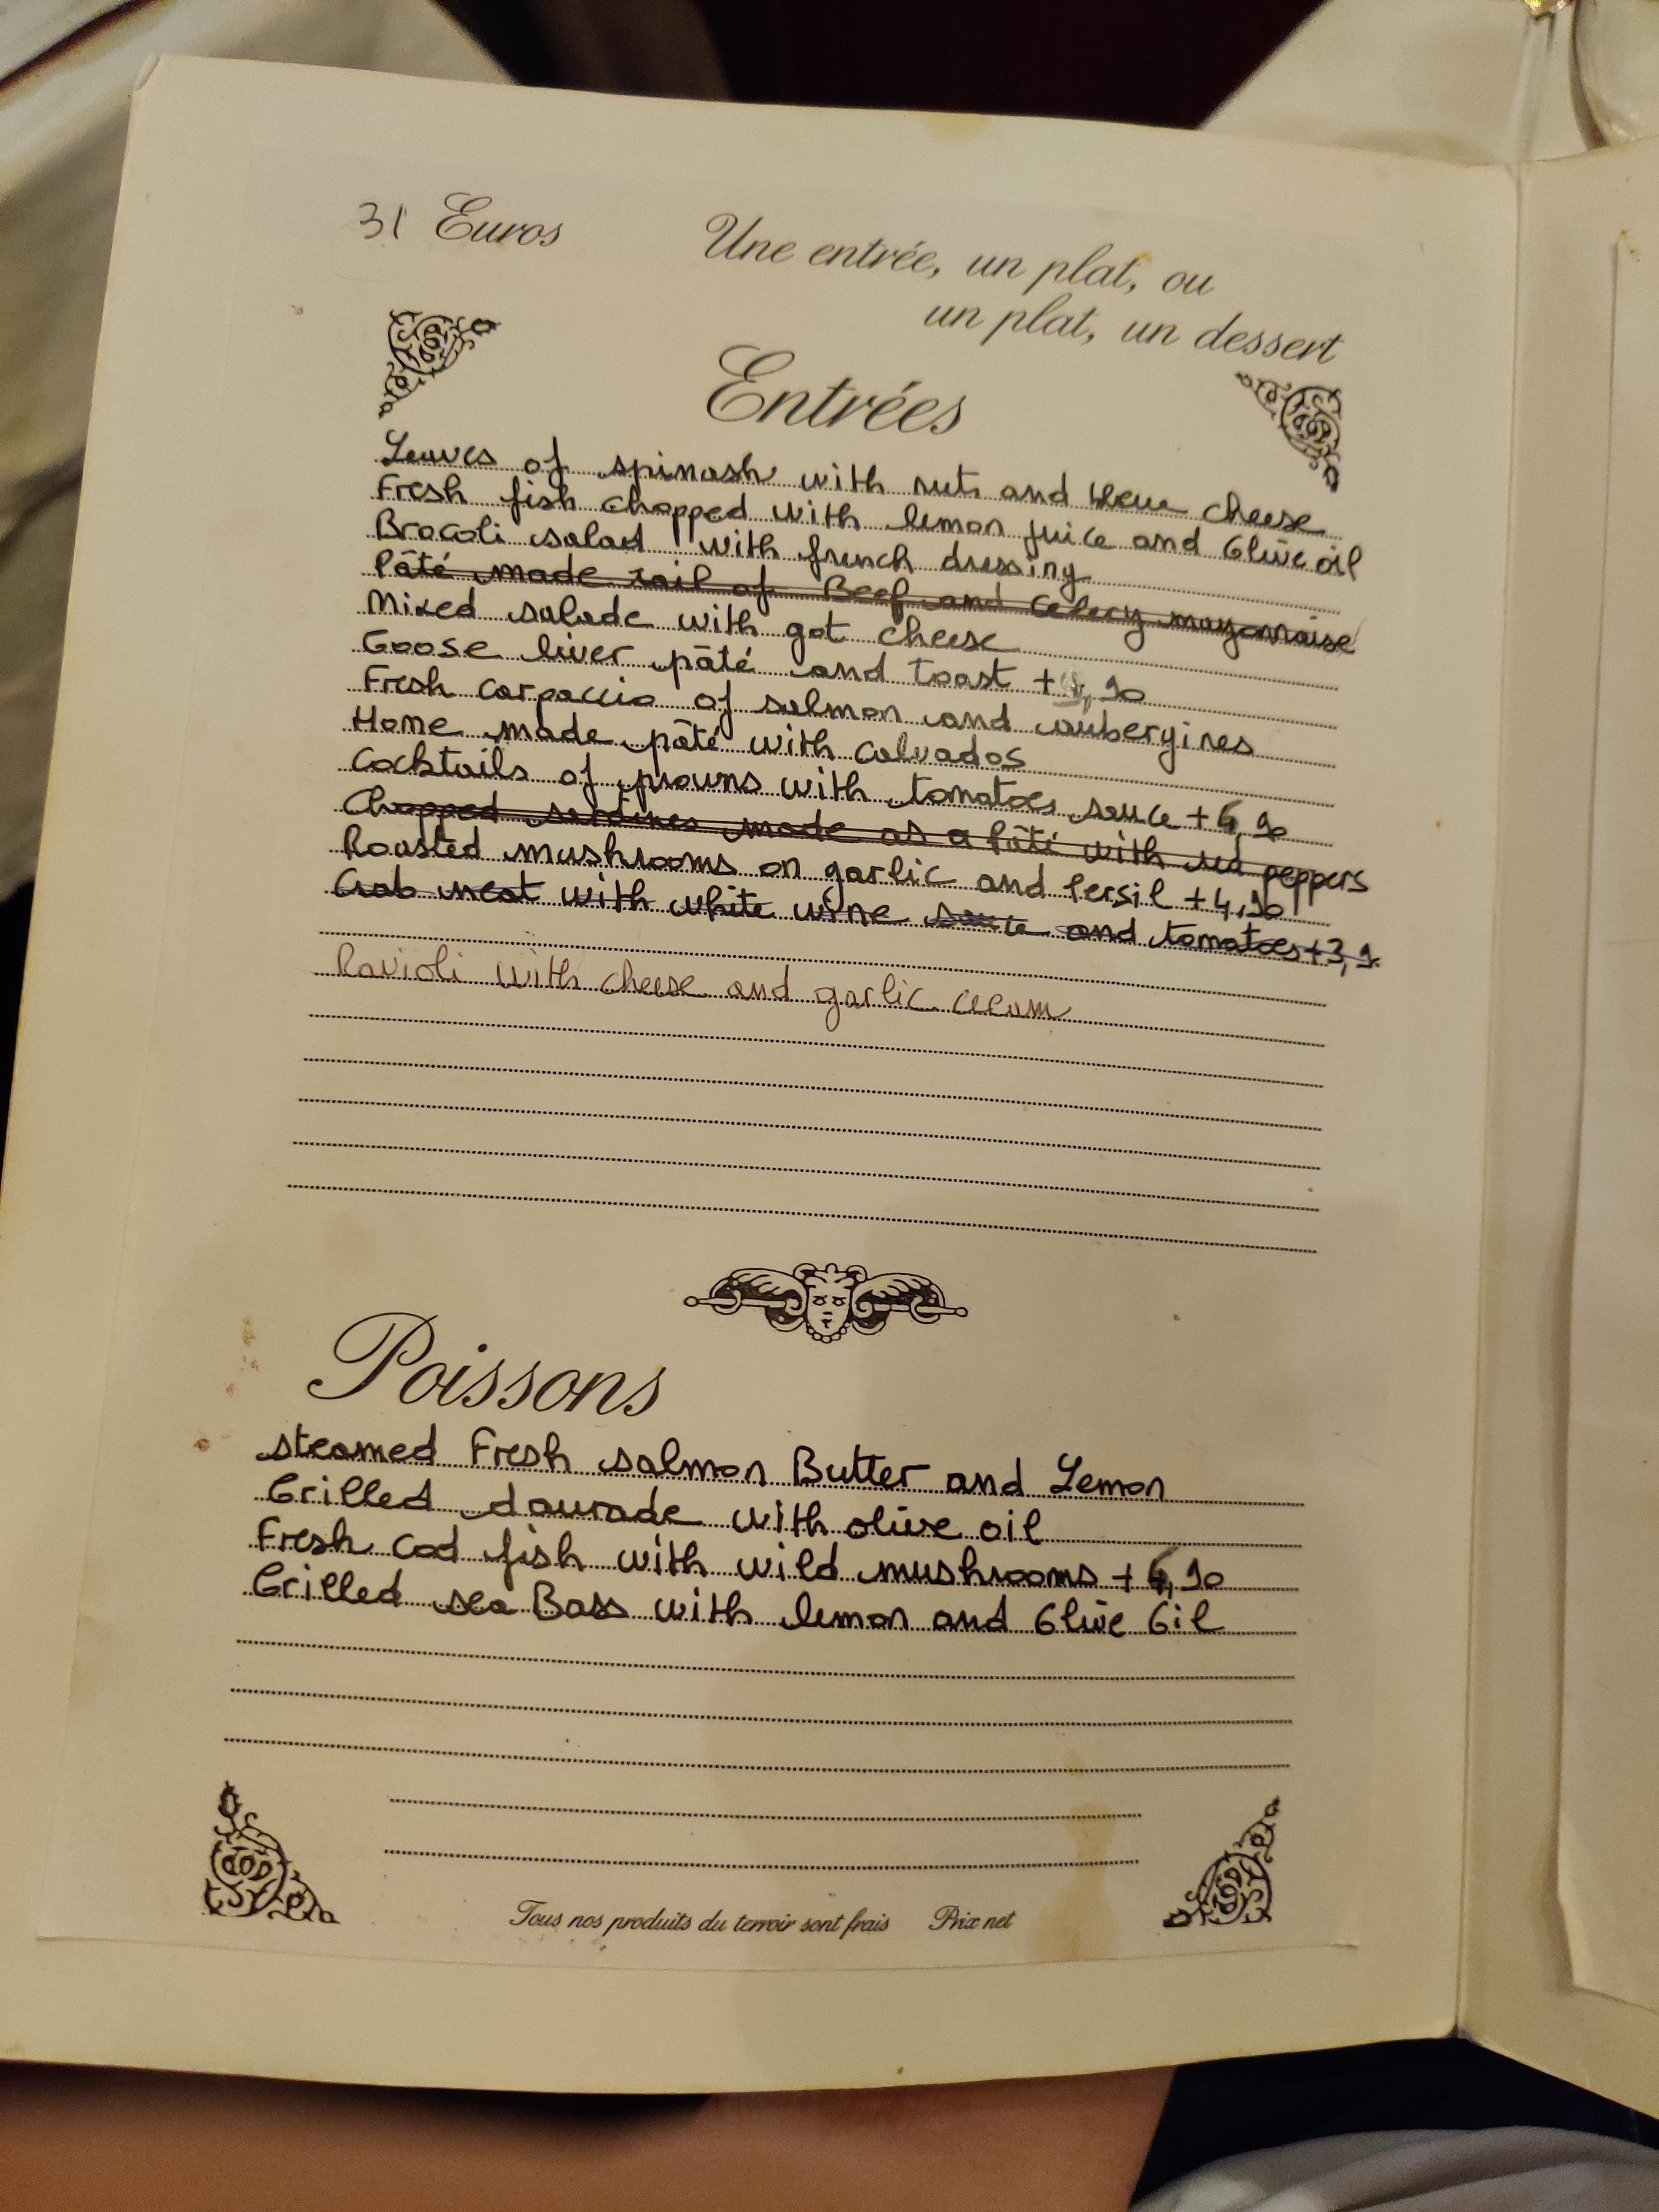 31 Euros
Une entrée, un plat, ou
un plat, un dessert
Entrées
Leaves of spinash with nuts and bleue cheese
Fresh fish chopped with lemon juice and Olive oil
Brocoli salad with french dressing
Pâté made tail of Beef and Celery mayonnaise
Mixed salade with got cheese
Goose liver pâté and toast + ,90
Fresh carpaccio of salmon and aubergines
Home made pâté with calvados
Cocktails of prowns with tomatoes sauce + 6,90
Chopped sardines made as a Pâté with red peppers
Roasted mushrooms on garlic and Persil + 4,90
Crab meat with white wine sauce and tomatoes + 3,9
Ravioli with cheese and garlic cream
Poissons
steamed Fresh salmon Butter and Lemon
Grilled daurade with olive oil
Fresh Cod fish with wild mushrooms + 6,90
Grilled sea Bass with lemon and Olive Oil
Tous nos produits du terroir sont frais Prix net